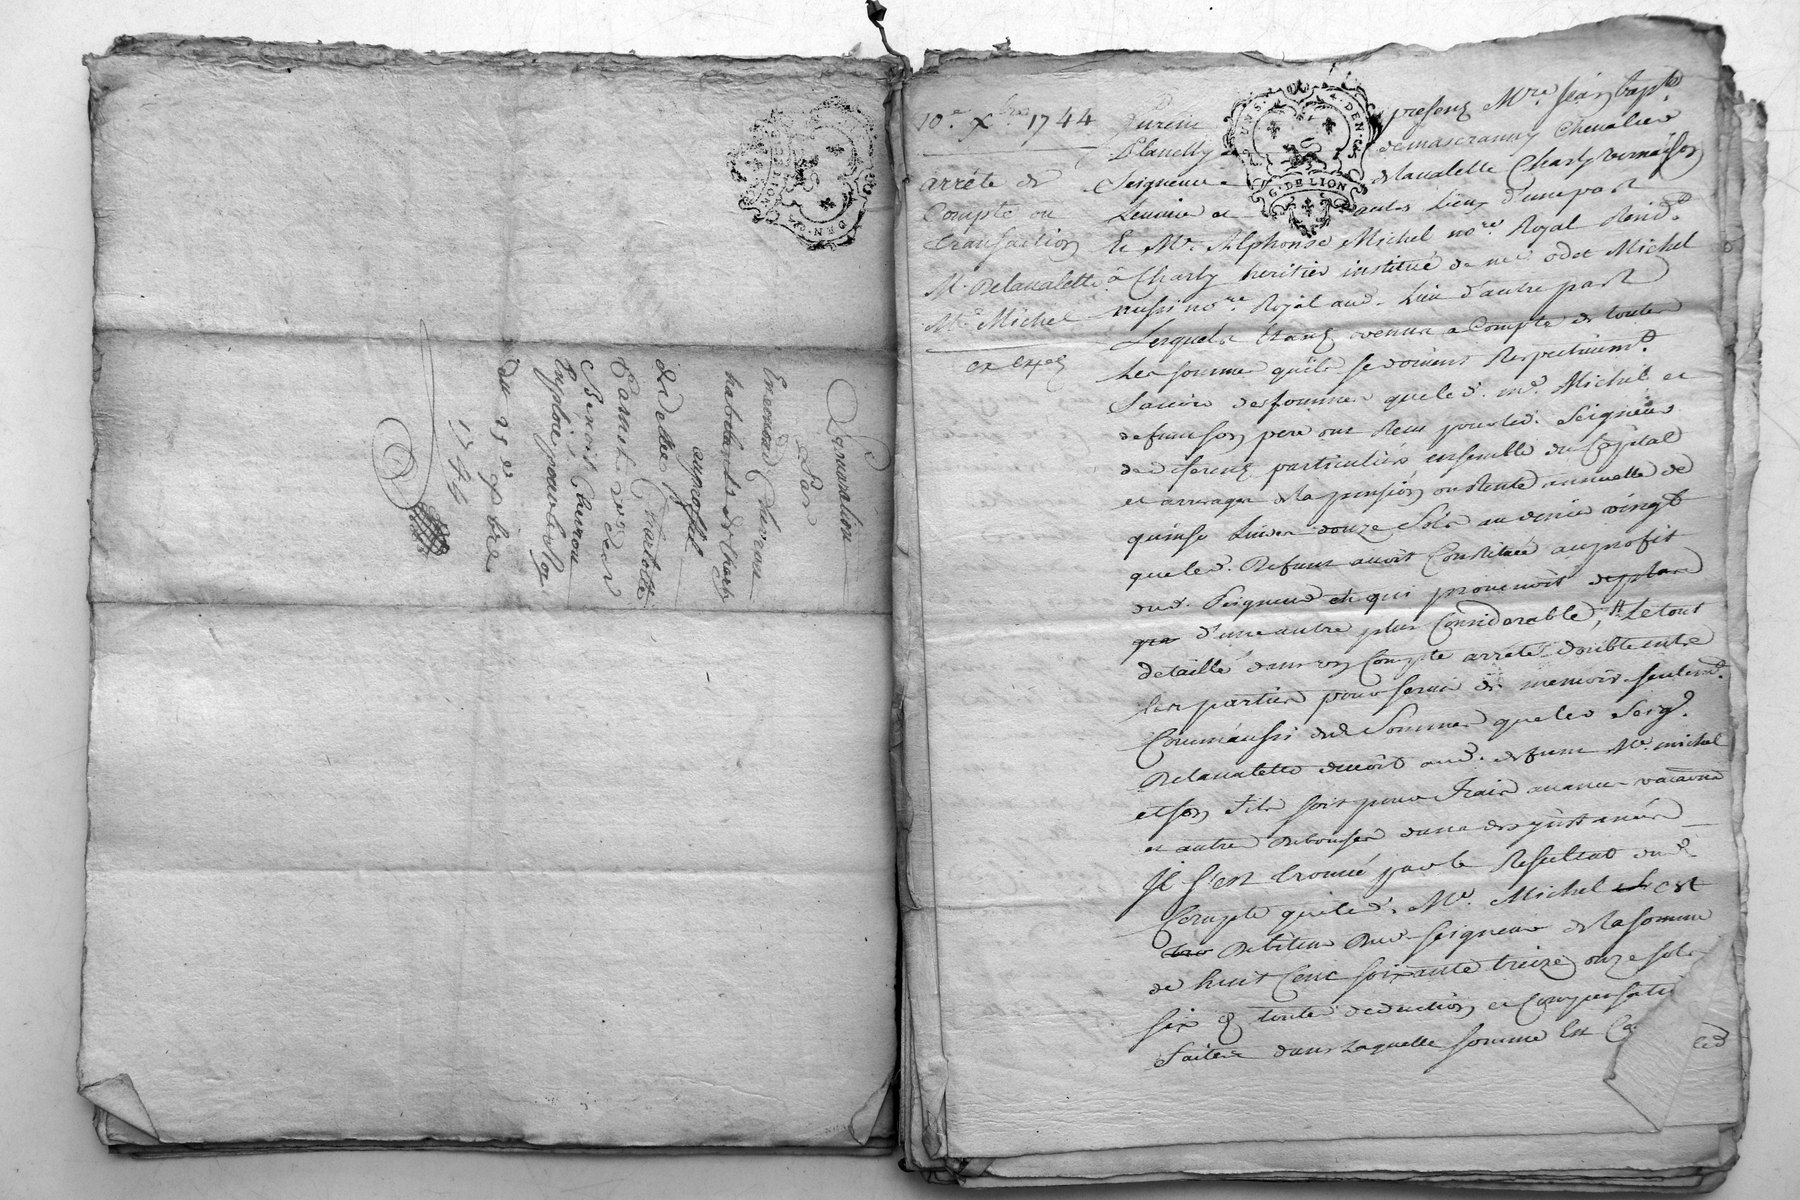 Par
Ennemond Chevron
habitants de Charly
au profit
de delle Charlotte
Benoit Chevron
du 25e 9bre
1744
G. DE LION
10e Xbre 1744
arrêté de
Compte ou
transaction
M. Delavalette
Me Michel
en exp
presens Mre Jean bapte
demascranny Chevalier
Seigneur delavalette Charly Vernaison
et autres Lieux d'une part
Et Me Alphonse Michel nore Royal Resid.
à Charly heritier institué de me odet Michel
aussi nore Royal aud. Lieu d'autre part
Lesquels Etant venus a Compte de toutes
les sommes qu'ils se doivent Respectivemt.
Savoir des sommes que led. me Michel et
defunt son pere ont Recu pour led. Seigneur
de particuliers ensemble du Capital
et arrerages de la pension ou Rente annuelle de
quinse Livres douze Sols au denier vingt
que led. Defunt avoit Constituée au profit
dud. Seigneur et qui provenoit
d'une autre plus Considerable, Le tout
detaillé dans un Compte arrété double entre
les parties pour servir de memoire seulemt.
Comme aussi des Sommes que led Seigr.
Delavalette devoit aud. defunt Me michel
et son fils soit pour frais avances vacations
et autres Debourses dans des
Il s'est trouvé par le Resultat dud.
Compte que led. Me Michel est
Debiteur Dud. Seigneur de la somme
de huit Cent soixante treize onze sols
six d toute deduction et Compensati
faites dans laquelle somme Est
led